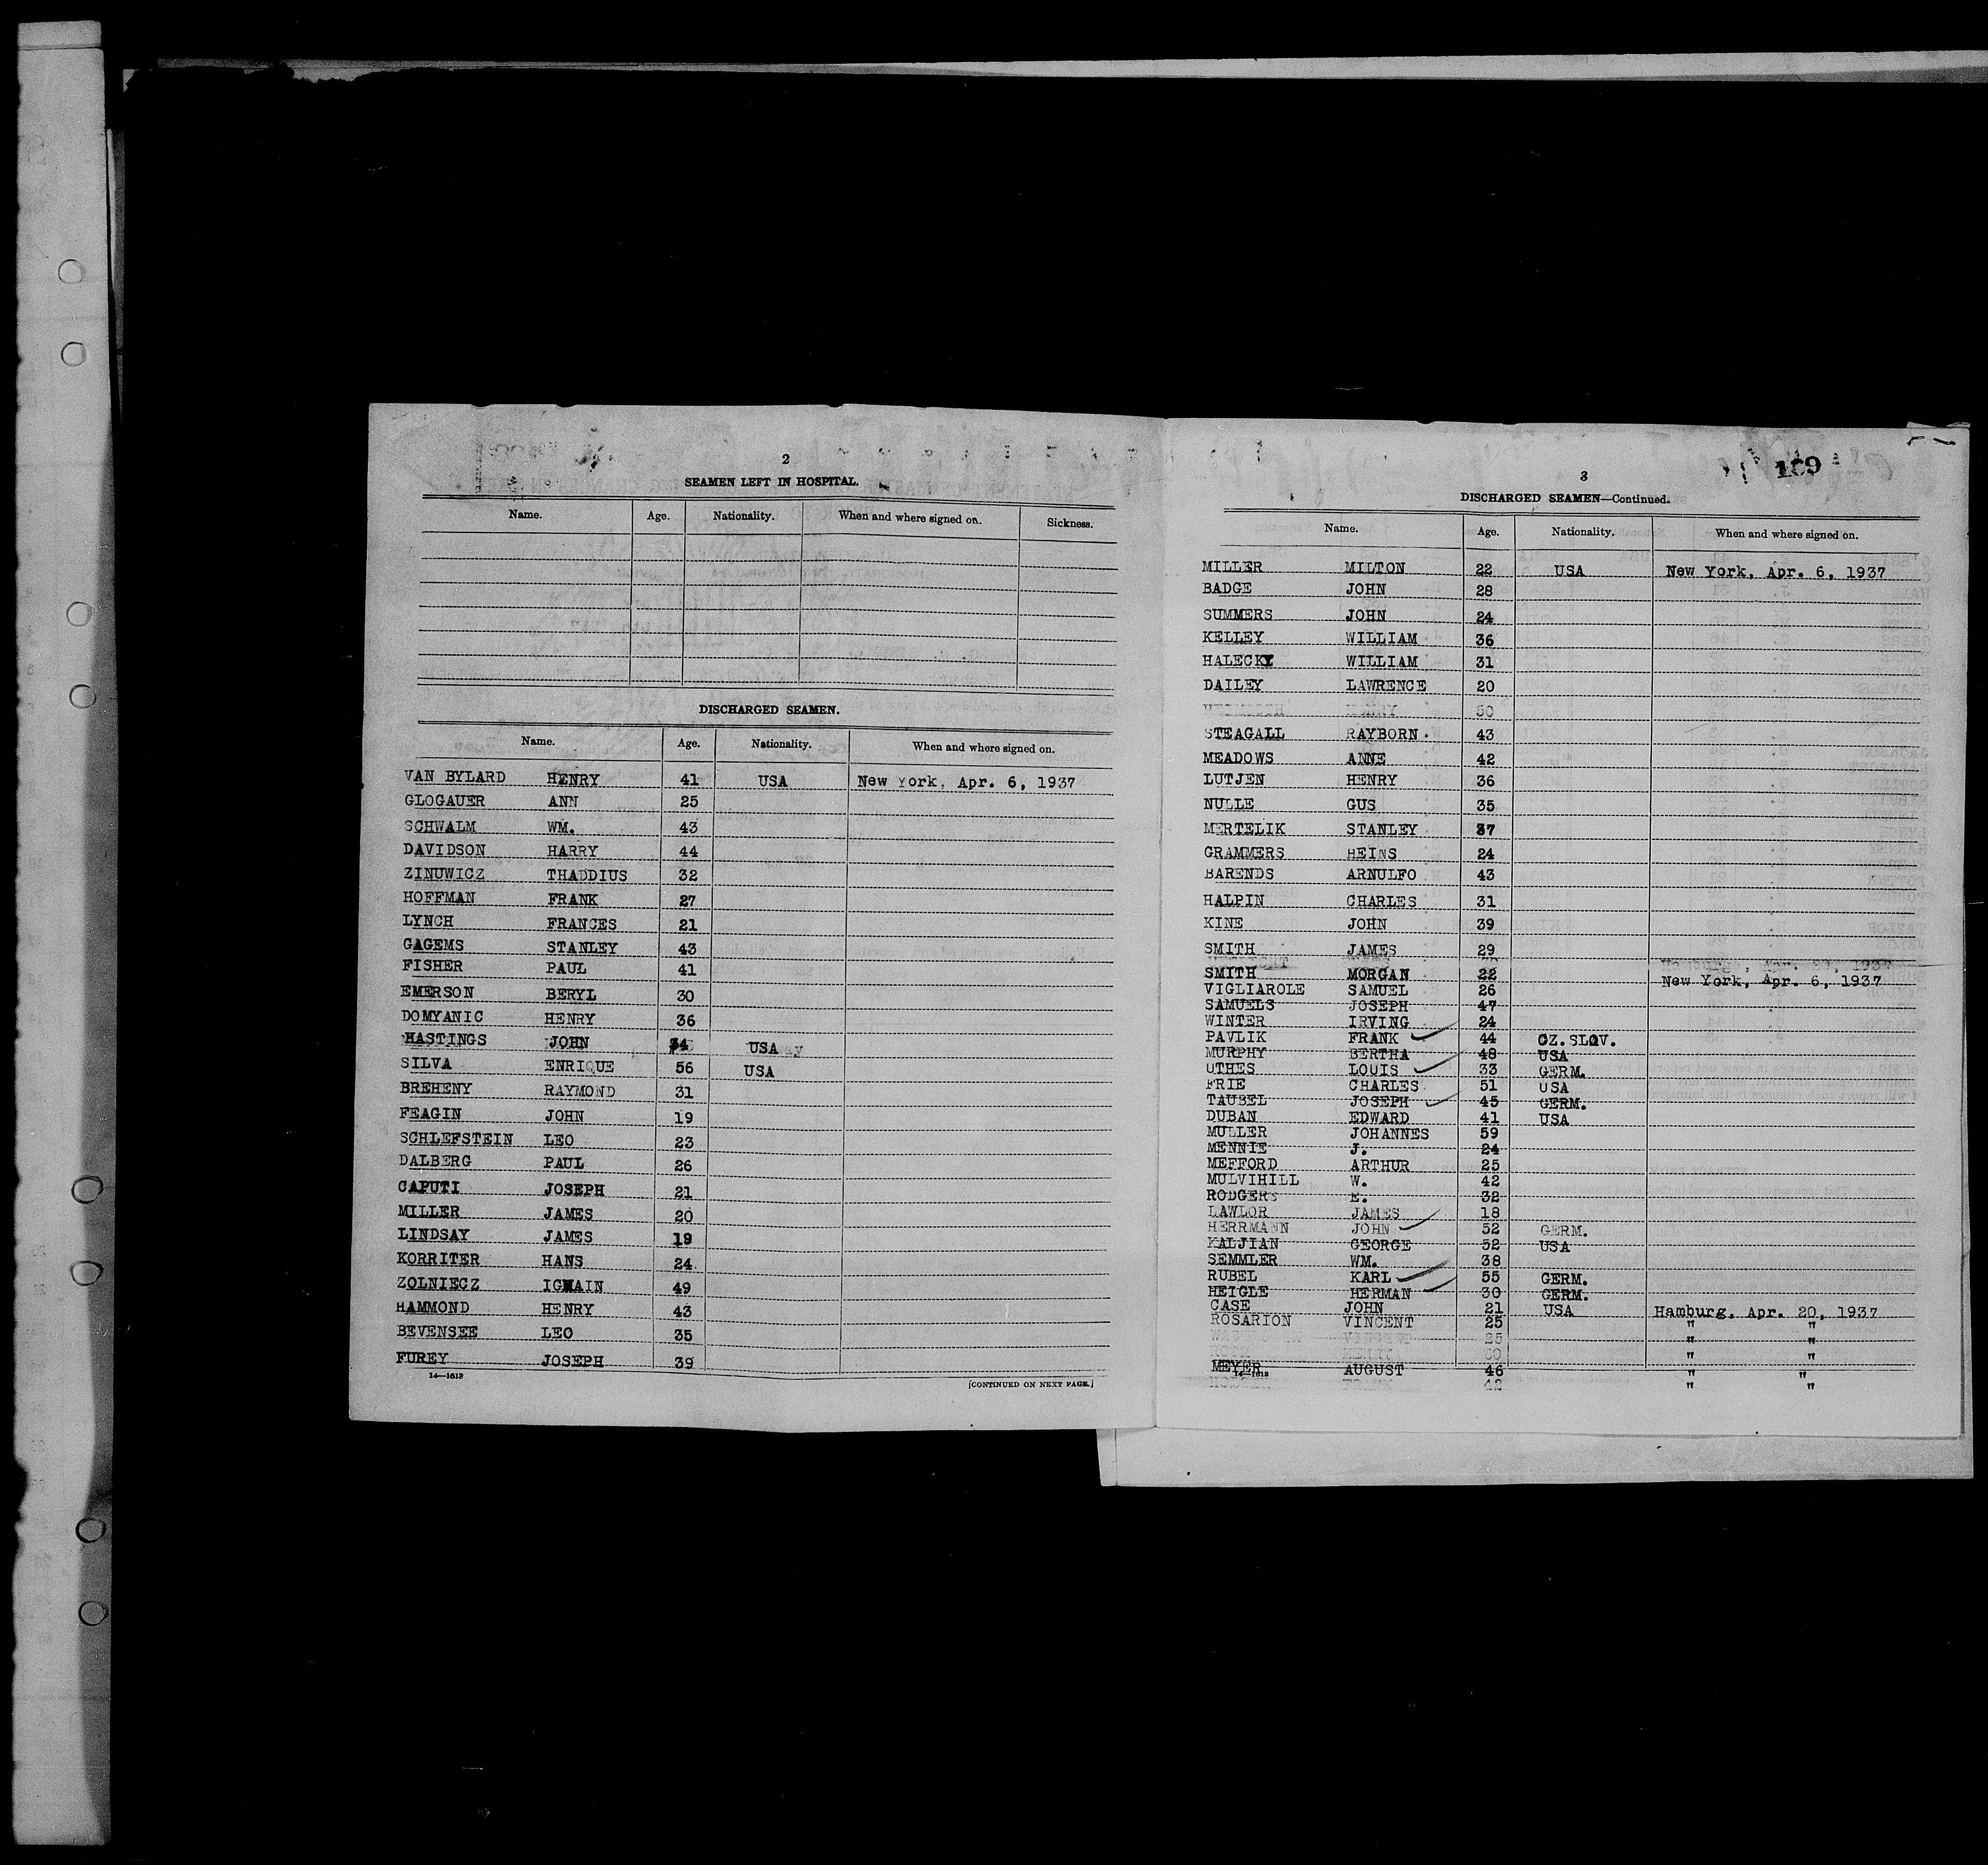 2
SEAMEN LEFT IN HOSPITAL.
Name. Age. Nationality. When and where signed on. Sickness.
DISCHARGED SEAMEN.
Name. Age. Nationality. When and where signed on.
VAN BYLARD HENRY 41 USA New York, Apr. 6, 1937
GLOGAUER ANN 25
SCHWALM WM. 43
DAVIDSON HARRY 44
ZINUWICZ THADDIUS 32
HOFFMAN FRANK 27
LYNCH FRANCES 21
GAGEMS STANLEY 43
FISHER PAUL 41
EMERSON BERYL 30
DOMYANIC HENRY 36
HASTINGS JOHN 34 USA
SILVA ENRIQUE 56 USA
BREHENY RAYMOND 31
FEAGIN JOHN 19
SCHLEFSTEIN LEO 23
DALBERG PAUL 26
CAPUTI JOSEPH 21
MILLER JAMES 20
LINDSAY JAMES 19
KORRITER HANS 24
ZOLNIECZ 49
HAMMOND HENRY 43
BEVENSEE LEO 35
FUREY JOSEPH 39
14—1613
[CONTINUED ON NEXT PAGE.]
169
3
DISCHARGED SEAMEN—Continued.
Name. Age. Nationality. When and where signed on.
MILLER MILTON 22 USA New York, Apr. 6, 1937
BADGE JOHN 28
SUMMERS JOHN 24
KELLEY WILLIAM 36
HALECKY WILLIAM 31
DAILEY LAWRENCE 20
50
STEAGALL RAYBORN 43
MEADOWS ANNE 42
LUTJEN HENRY 36
NULLE GUS 35
MERTELIK STANLEY 37
GRAMMERS HEINS 24
BARENDS ARNULFO 43
HALPIN CHARLES 31
KINE JOHN 39
SMITH JAMES 29
SMITH MORGAN 22 New York, Apr. 6, 1937
VIGLIAROLE SAMUEL 26
SAMUELS JOSEPH 47
WINTER IRVING 24
PAVLIK FRANK 44 CZ.SLOV.
MURPHY BERTHA 48 USA
UTHES LOUIS 33 GERM.
FRIE CHARLES 51 USA
TAUBEL JOSEPH 45 GERM.
DUBAN EDWARD 41 USA
MULLER JOHANNES 59
MENNIE J. 24
MEFFORD ARTHUR 25
MULVIHILL W. 42
RODGERS E. 32
LAWLOR JAMES 18
HERRMANN JOHN 52 GERM.
KALJIAN GEORGE 52 USA
SEMMLER WM. 38
RUBEL KARL 55 GERM.
HEIGLE HERMAN 30 GERM.
CASE JOHN 21 USA Hamburg, Apr. 20, 1937
ROSARION VINCENT 25 " "
25 " "
" "
MEYER AUGUST 46 " "
42 " "